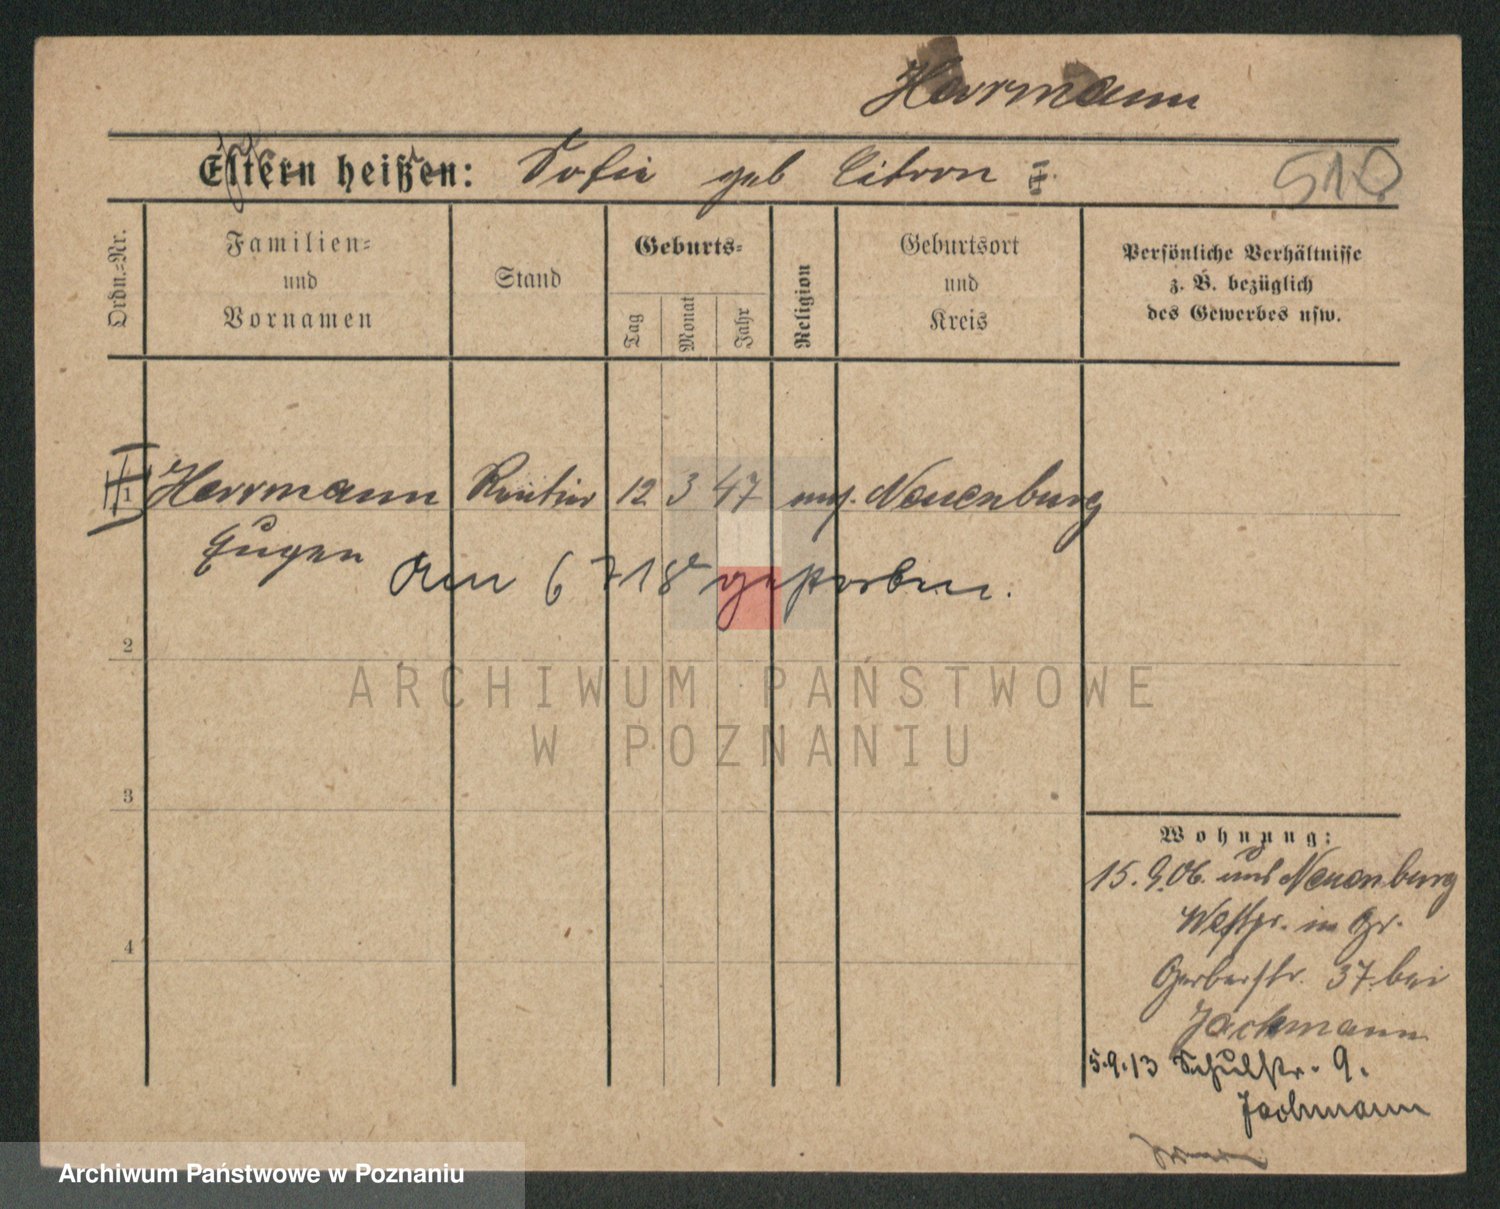 Herrmann
Eltern heißen: Sofie geb Citron II.
510
Ordn.=Nr.
Familien=
und
Vornamen
Stand
Geburts=
Tag
Monat
Jahr
Religion
Geburtsort
und
Kreis
Persönliche Verhältnisse
z. B. bezüglich
des Gewerbes usw.
1 Herrmann Rentier 12 3 47 mos. Neuenburg
Eugen
Am 6 7 18 gestorben.
2
3
4
ARCHIWUM PAŃSTWOWE
W POZNANIU
Wohnung:
15.9.06. aus Neuenburg
Westpr. in Gr.
Gerberstr. 37 bei
Jackmann
5.9.13 Schulstr. 9.
Jachmann
Archiwum Państwowe w Poznaniu